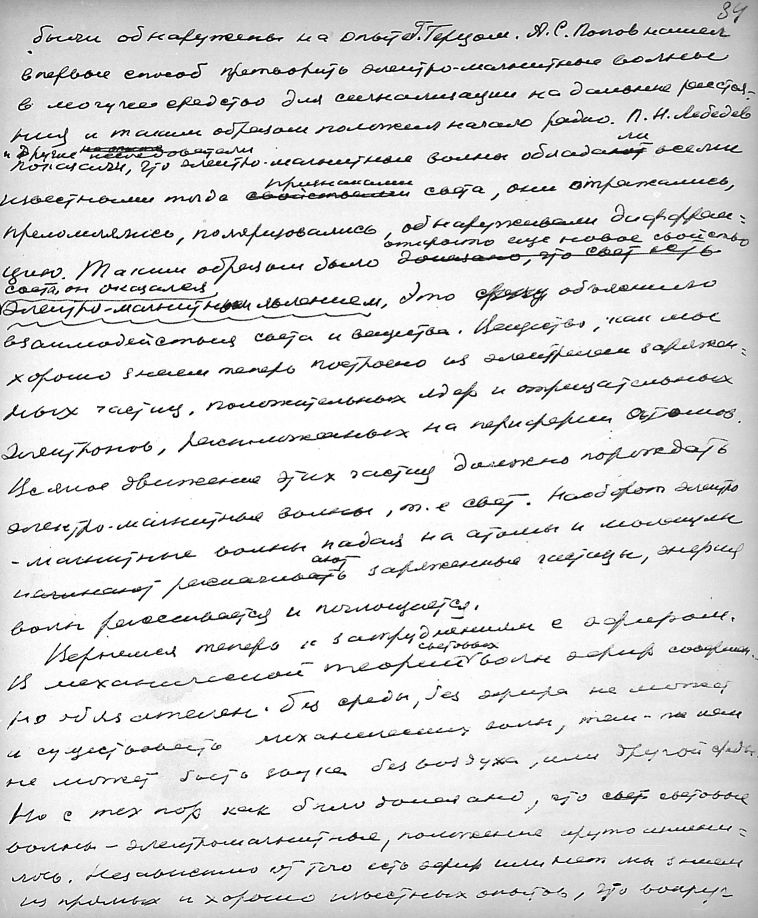 34
были обнаружены на опыте Г. Герцом. А.С. Попов нашел
впервые способ претворить электро-магнитные волны
в могучее средство для сигнализации на дальние расстоя-
ния и таким образом положил начало радио. П.Н. Лебедев
и другие исследователи
показали, что электро-магнитные волны обладали всеми
признаками
известными тогда свойствами света, они отражались,
преломлялись, поляризовались, обнаруживали диффрак=
открыто еще новое свойство
цию. Таким образом было доказано, что свет есть
света, он оказался
электро-магнитным явлением. Это сразу объяснило
взаимодействия света и вещества. Вещество, как мы
хорошо знаем теперь построено из электрически заряжен=
ных частиц, положительных ядер и отрицательных
электронов, расположенных на периферии атомов.
Всякое движение этих частиц должно порождать
электро-магнитные волны, т.е свет. Наоборот электро
-магнитные волны падая на атомы и молекулы
ают
начинают раскачивать заряженные частицы, энергия
волн рассеивается и поглощается.
Вернемся теперь к затруднениям с эфиром.
световых
В механической теории волн эфир совершен-
но обязателен. Без среды, без эфира не может
и существовать механических волн, так-же как
не может быть звука без воздуха, или другой среды.
Но с тех пор как было доказано, что свет световые
волны – электромагнитные, положение круто измени=
лось. Независимо от того есть эфир или нет мы знаем
из прямых и хорошо известных опытов, что вокруг-